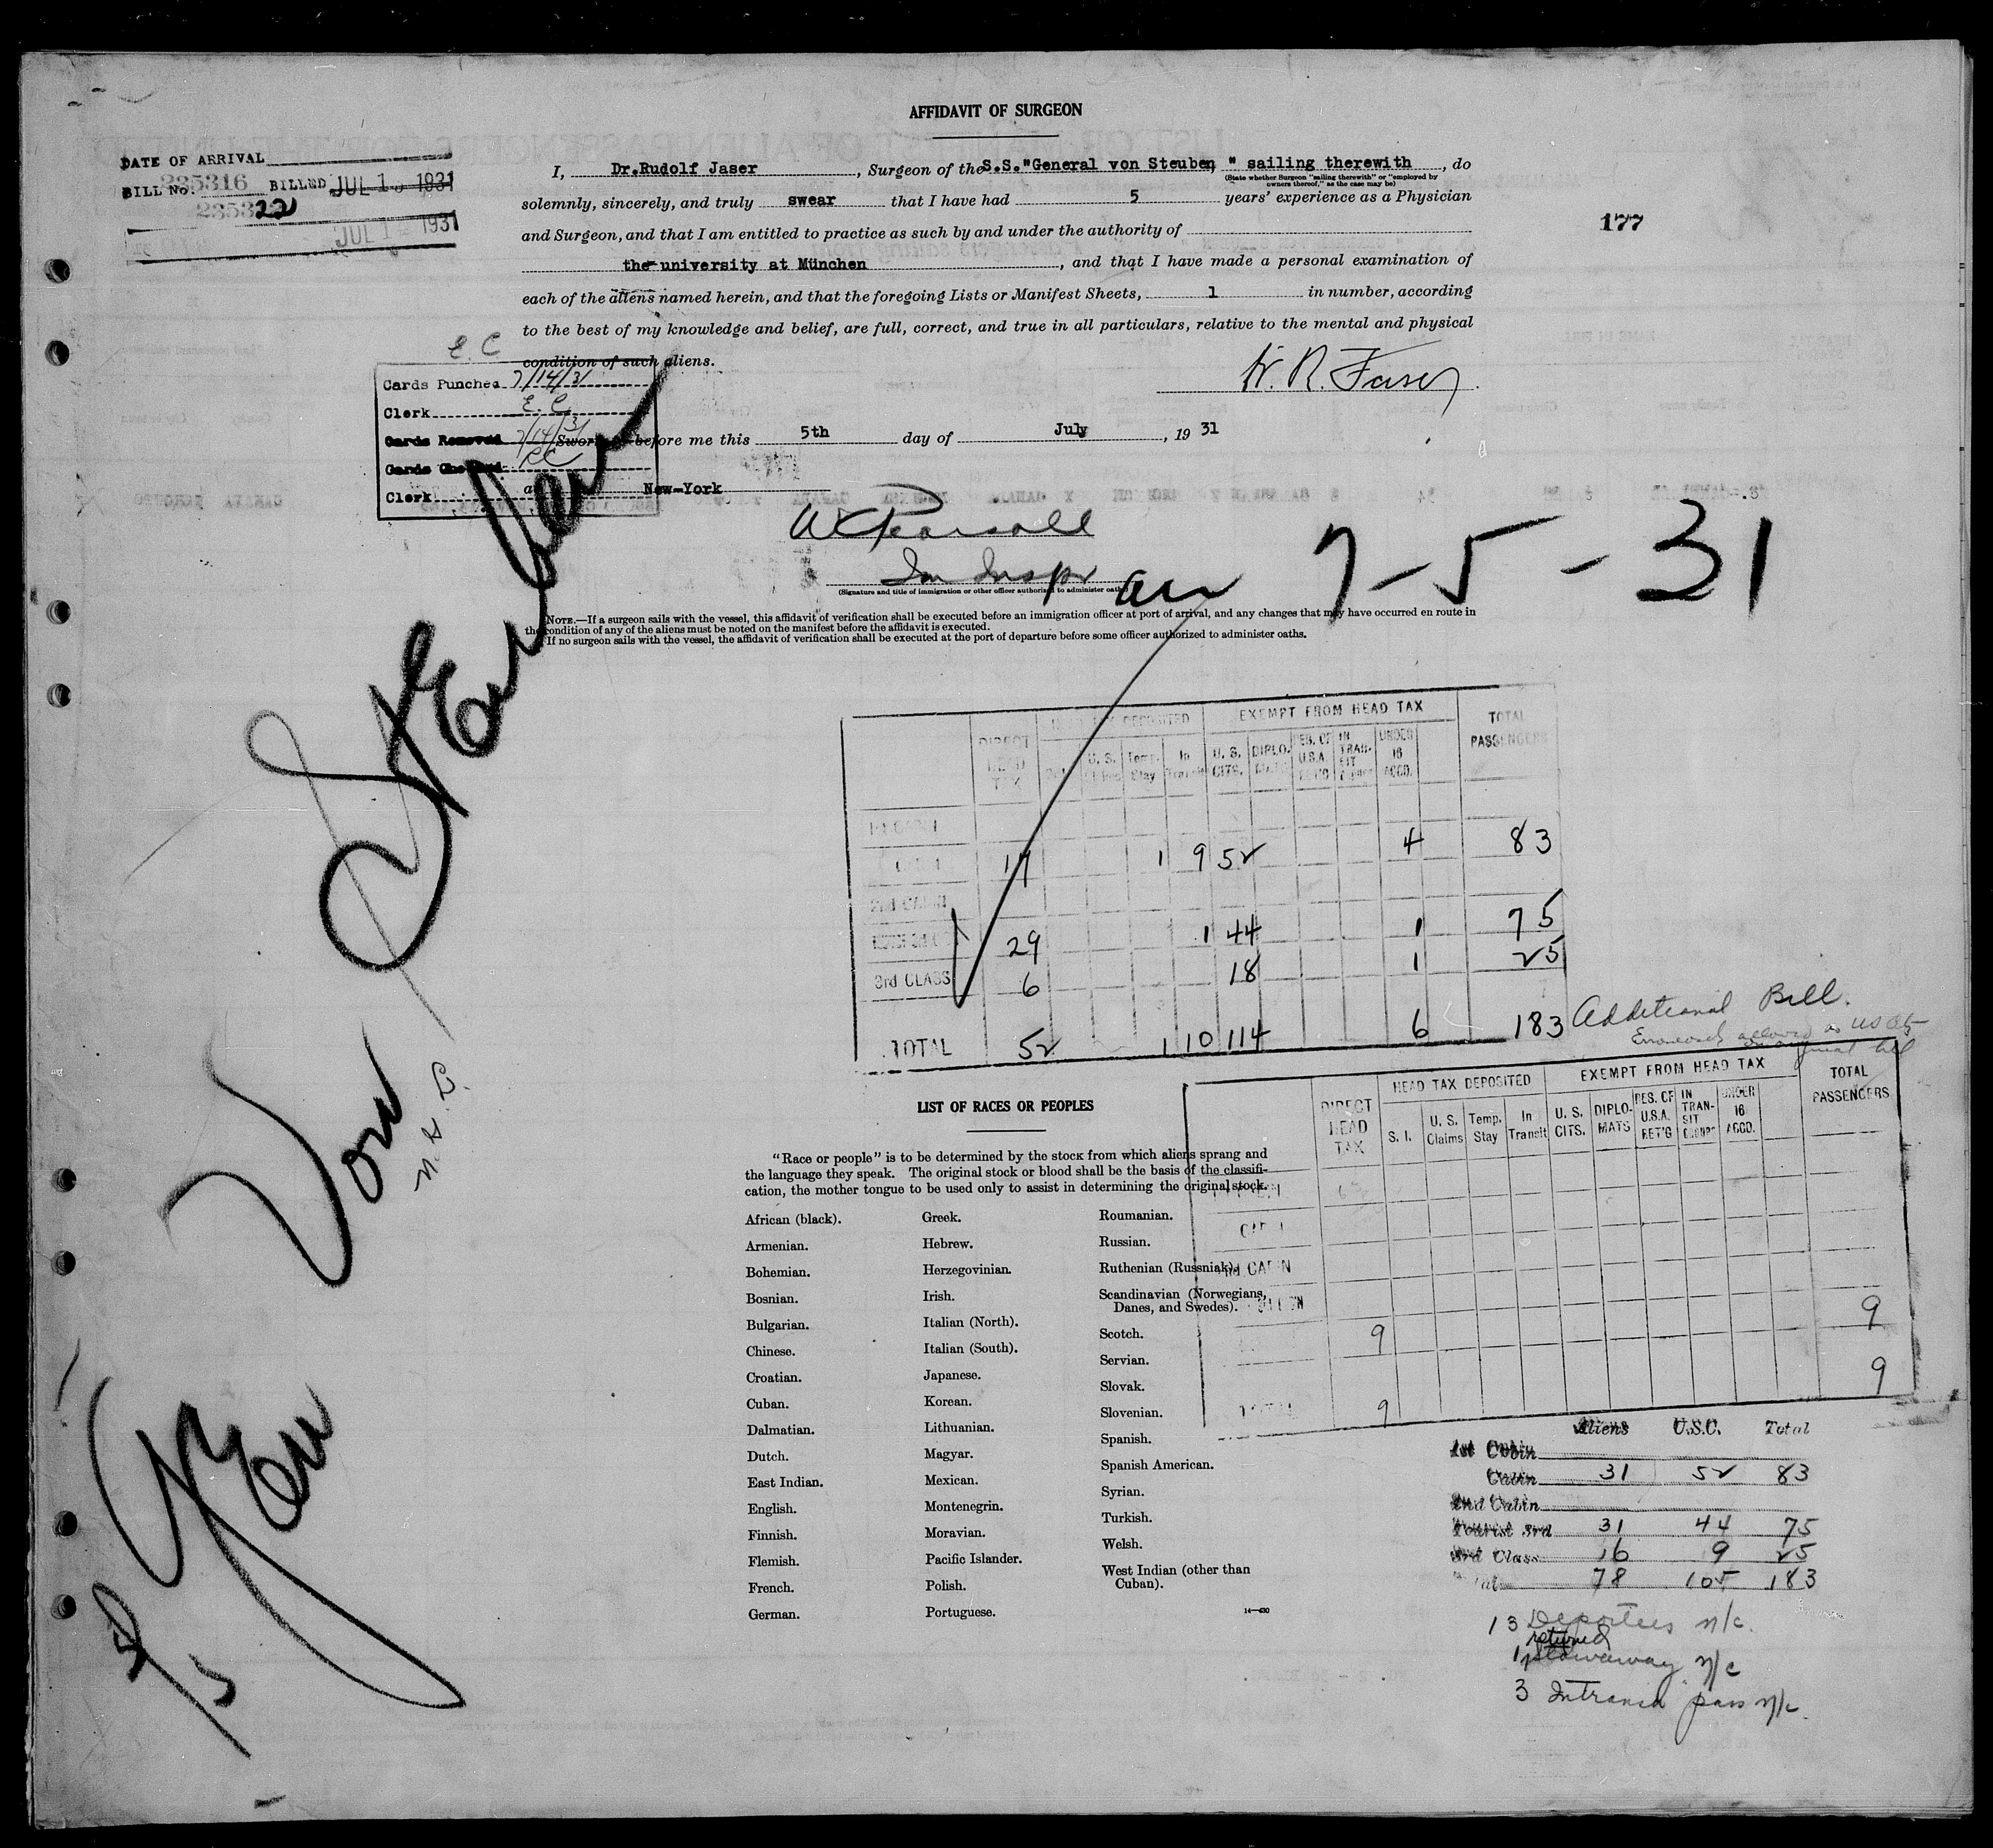 AFFIDAVIT OF SURGEON
DATE OF ARRIVAL
BILL No. 235316 BILLED JUL 1 1931
JUL 1 1931
177
I, Dr.Rudolf Jaser, Surgeon of the S.S."General von Steuben, " sailing therewith, do
(State whether Surgeon "sailing therewith" or "employed by
owners thereof," as the case may be)
solemnly, sincerely, and truly swear that I have had 5 years' experience as a Physician
and Surgeon, and that I am entitled to practice as such by and under the authority of
the university at München, and that I have made a personal examination of
each of the aliens named herein, and that the foregoing Lists or Manifest Sheets, 1 in number, according
to the best of my knowledge and belief, are full, correct, and true in all particulars, relative to the mental and physical
condition of such aliens.
E. C
Cards Punched 7/14/31
Clerk E. C.
Cards Removed 7/14/31
Clerk
before me this 5th day of July, 1931
at New-York
W Pearsall
Im Inspr
(Signature and title of immigration or other officer authorized to administer oath)
arr 7-5-31
NOTE.—If a surgeon sails with the vessel, this affidavit of verification shall be executed before an immigration officer at port of arrival, and any changes that may have occurred en route in
the condition of any of the aliens must be noted on the manifest before the affidavit is executed.
If no surgeon sails with the vessel, the affidavit of verification shall be executed at the port of departure before some officer authorized to administer oaths.
Gen Von Steuben
7/5
DIRECT HEAD TAX
DEPOSITED
EXEMPT FROM HEAD TAX
TOTAL PASSENGERS
U. S. Temp. Stay In Transit U. S. CITS. DIPLOMATS RES. OF U.S.A. RET'G IN TRANSIT GROUPS UNDER 16 ACCD.
17 1 9 52 4 83
2nd CABIN
29 1 44 1 75
3rd CLASS 6 18 1 25
TOTAL 52 1 10 114 6 183
Additional Bill.
DIRECT HEAD TAX
HEAD TAX DEPOSITED
EXEMPT FROM HEAD TAX
TOTAL PASSENGERS
S. I. U. S. Claims Temp. Stay In Transit U. S. CITS. DIPLOMATS RES. OF U.S.A. RET'G IN TRANSIT GROUPS UNDER 16 ACCD.
9 9
TOTAL 9 9
LIST OF RACES OR PEOPLES
"Race or people" is to be determined by the stock from which aliens sprang and
the language they speak. The original stock or blood shall be the basis of the classifi-
cation, the mother tongue to be used only to assist in determining the original stock.
African (black).
Armenian.
Bohemian.
Bosnian.
Bulgarian.
Chinese.
Croatian.
Cuban.
Dalmatian.
Dutch.
East Indian.
English.
Finnish.
Flemish.
French.
German.
Greek.
Hebrew.
Herzegovinian.
Irish.
Italian (North).
Italian (South).
Japanese.
Korean.
Lithuanian.
Magyar.
Mexican.
Montenegrin.
Moravian.
Pacific Islander.
Polish.
Portuguese.
Roumanian.
Russian.
Ruthenian (Russniak).
Scandinavian (Norwegians,
Danes, and Swedes).
Scotch.
Servian.
Slovak.
Slovenian.
Spanish.
Spanish American.
Syrian.
Turkish.
Welsh.
West Indian (other than
Cuban).
14—430
Aliens U.S.C. Total
1st Cabin
Cabin 31 52 83
2nd Cabin
Tourist 3rd 31 44 75
3rd Class 16 9 25
78 105 183
13 Deportees n/c.
returned
1 stowaway n/c
3 Intransit pass n/c.